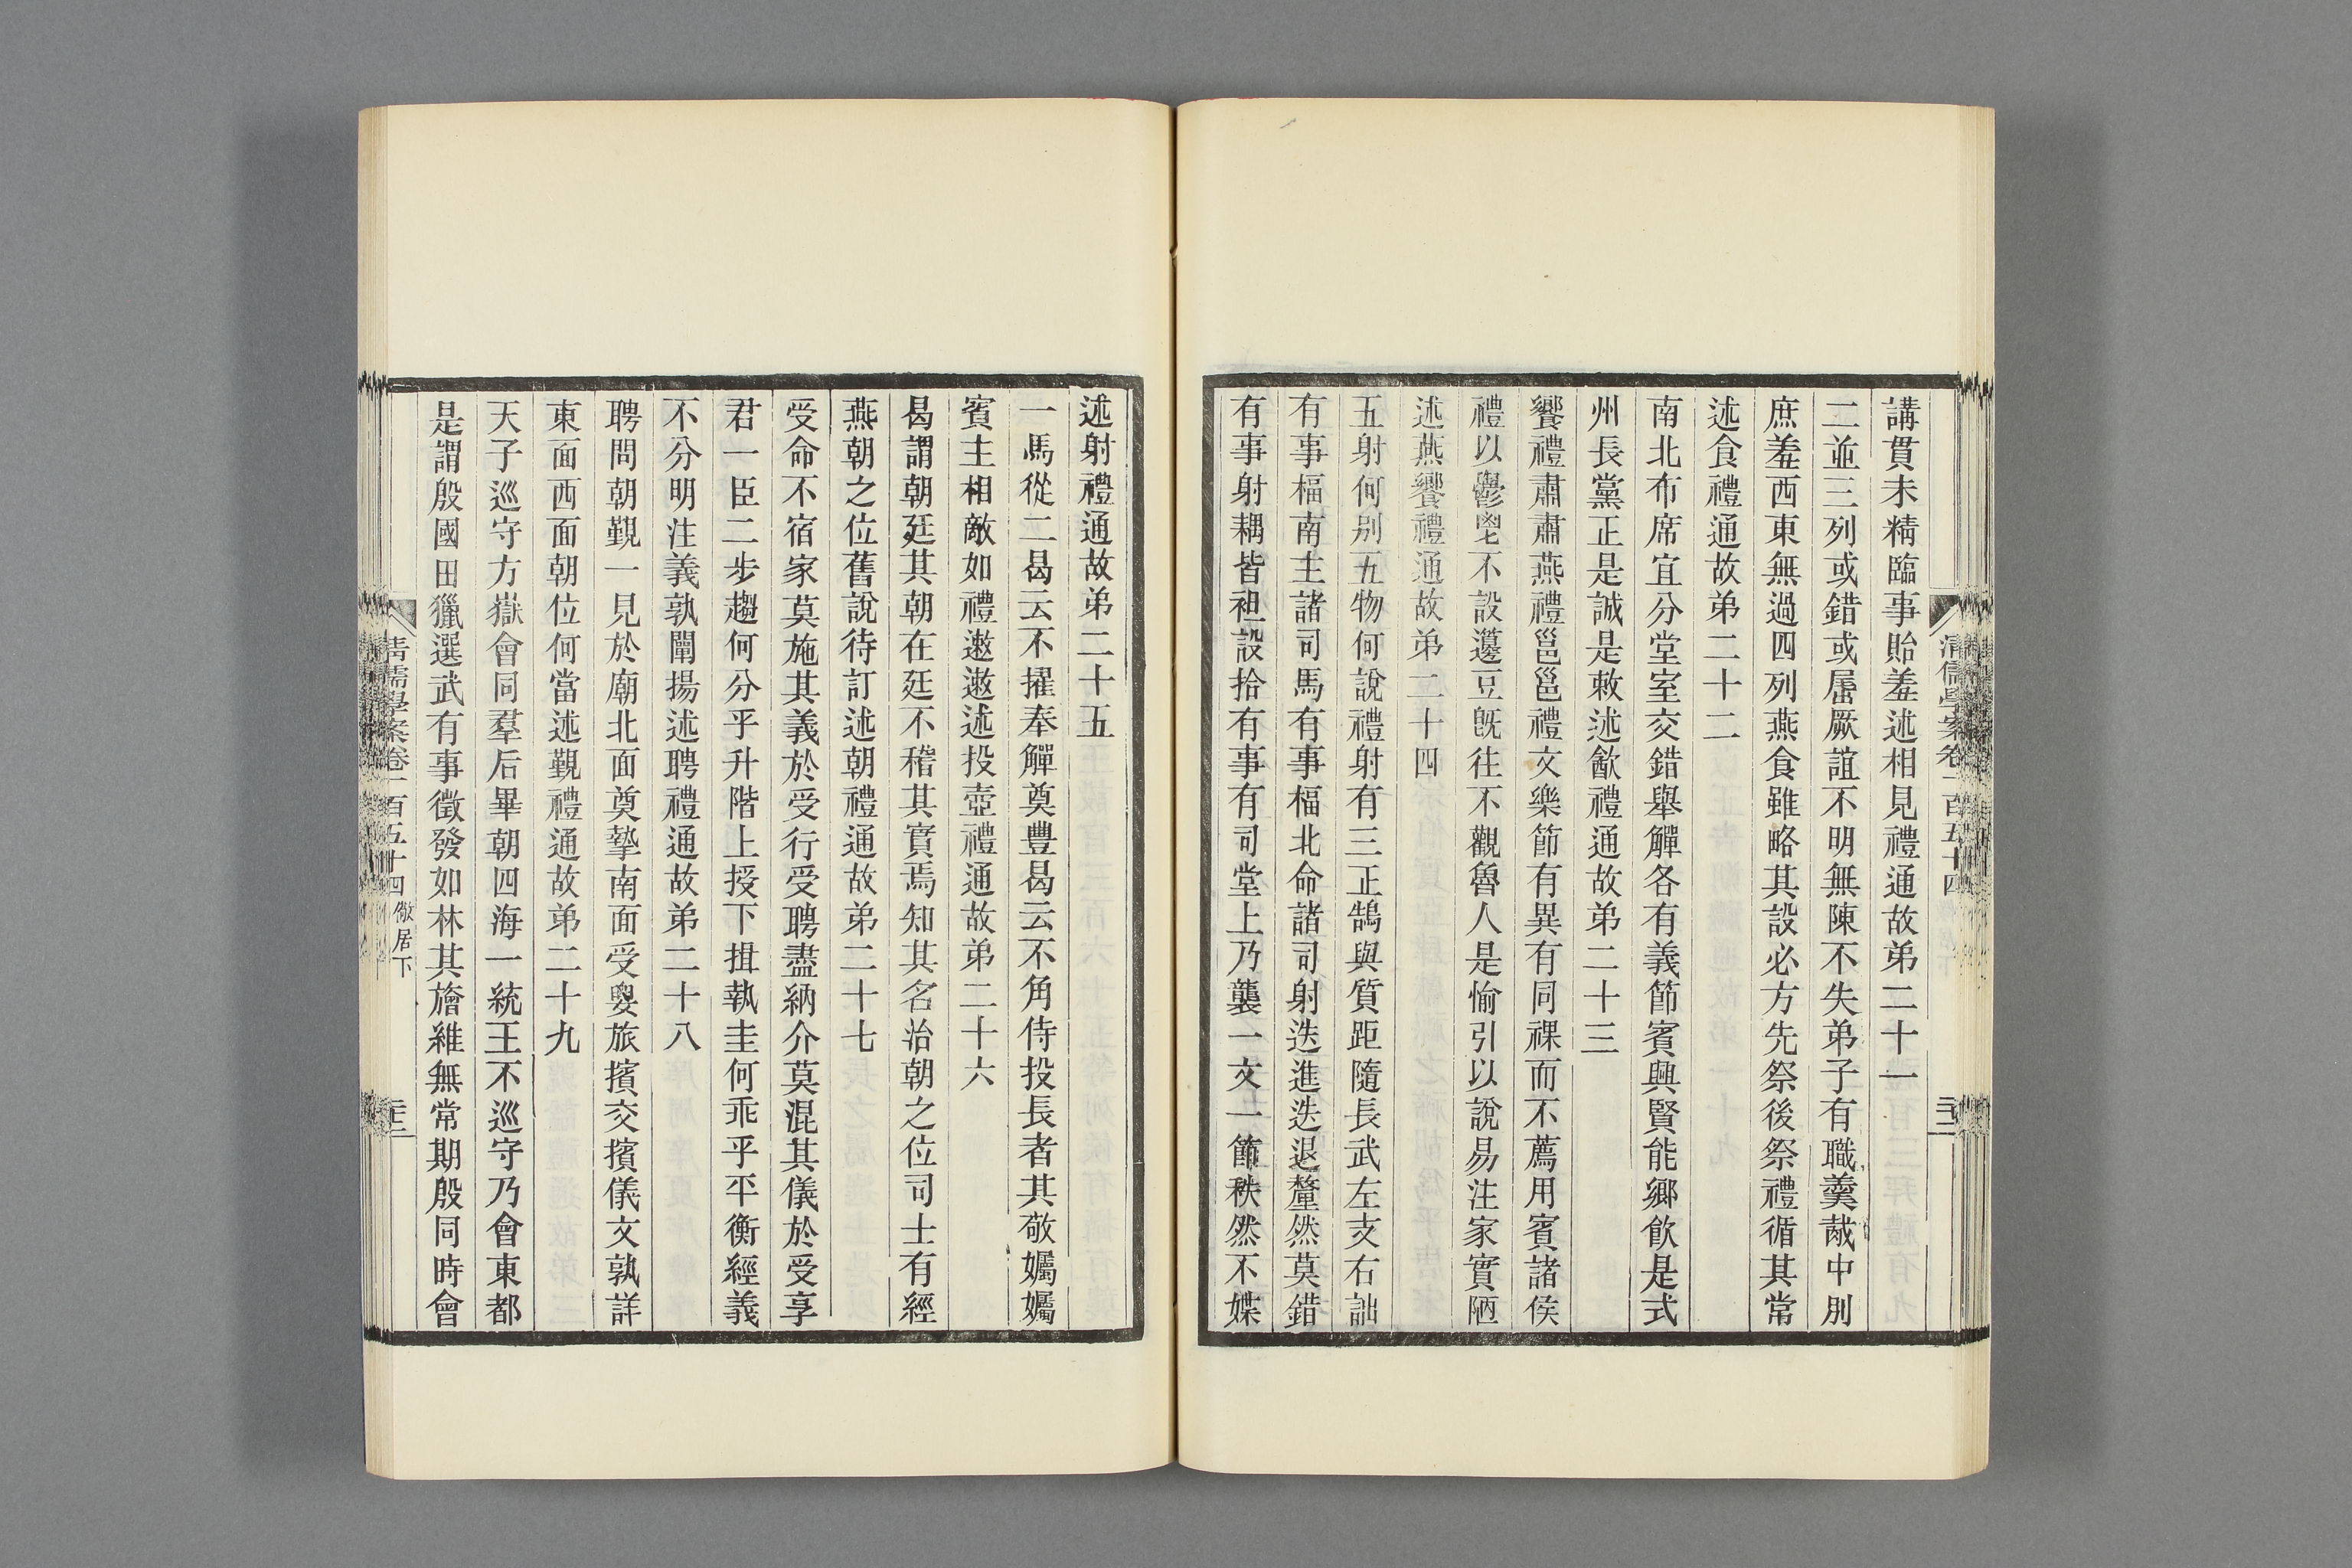 講貫未精臨事貽羞述相見禮通故弟二十一
二並三列或錯或屈厥誼不明無陳不失弟子有職羹胾中別
庶羞西東無過四列燕食雖略其設必方先祭後祭禮循其常
述食禮通故弟二十二
南北布席宜分堂室交錯舉觶各有義節賓興賢能鄉飮是式
州長黨正是誠是敕述飮禮通故弟二十三
饗禮肅肅燕禮邕邕禮文樂節有異有同祼而不薦用賓諸侯
禮以鬱鬯不設籩豆旣往不觀魯人是愉引以說易注家實陋
述燕饗禮通故弟二十四
五射何別五物何說禮射有三正鵠與質距隨長武左支右詘
有事楅南主諸司馬有事楅北命諸司射迭進迭退釐然莫錯
有事射耦皆袒設拾有事有司堂上乃襲一文一節秩然不媟
述射禮通故弟二十五
一馬從二曷云不擢奉觶奠豐曷云不角侍投長者其敬孎孎
賓主相敵如禮遬遬述投壺禮通故弟二十六
曷謂朝廷其朝在廷不稽其實焉知其名治朝之位司士有經
燕朝之位舊說待訂述朝禮通故弟二十七
受命不宿家莫施其義於受行受聘盡納介莫混其儀於受享
君一臣二步趨何分乎升階上授下揖執圭何乖乎平衡經義
不分明注義孰闡揚述聘禮通故弟二十八
聘問朝覲一見於廟北面奠摯南面受嬰旅擯交擯儀文孰詳
東面西面朝位何當述覲禮通故弟二十九
天子巡守方嶽會同羣后畢朝四海一統王不巡守乃會東都
是謂殷國田獵選武有事徵發如林其旝維無常期殷同時會
清儒學案卷一百五十四 儆居下